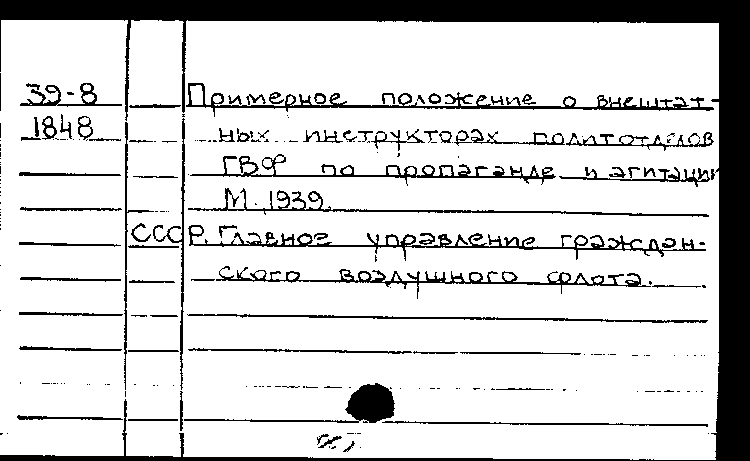 39-8 Примерное положение о внештат-
1848 ных инструкторах политотделов
ГВФ по пропаганде и агитации
М. 1939.
СССР. Главное управление граждан-
ского воздушного флота.